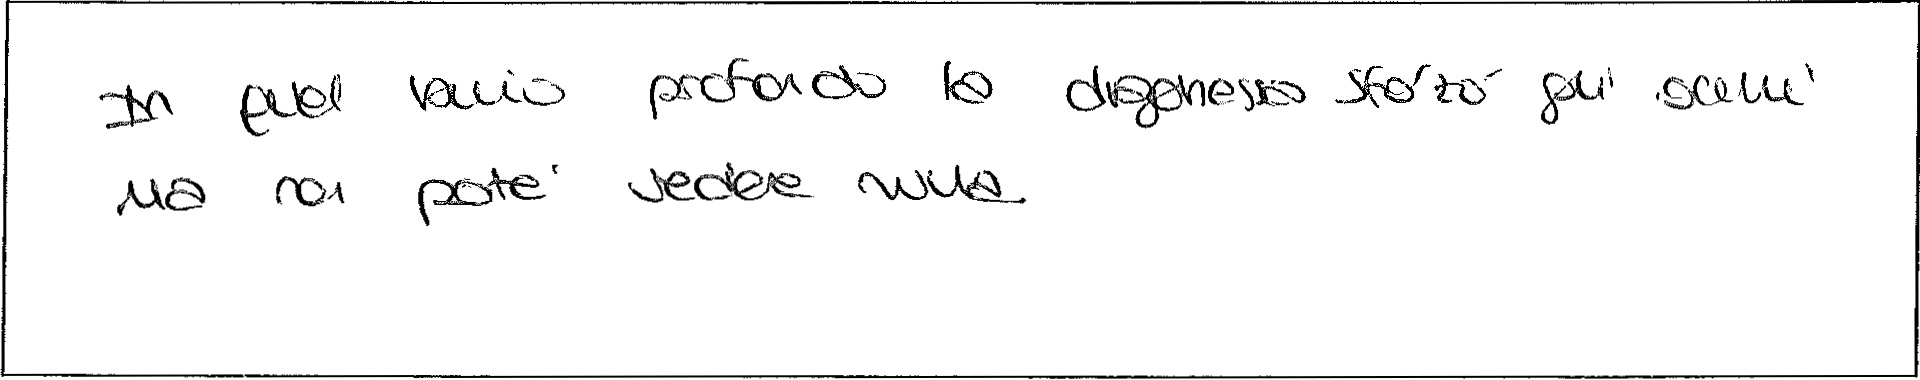 In quel buio profondo la dragonessa sforzò gli occhi
ma non poté vedere nulla